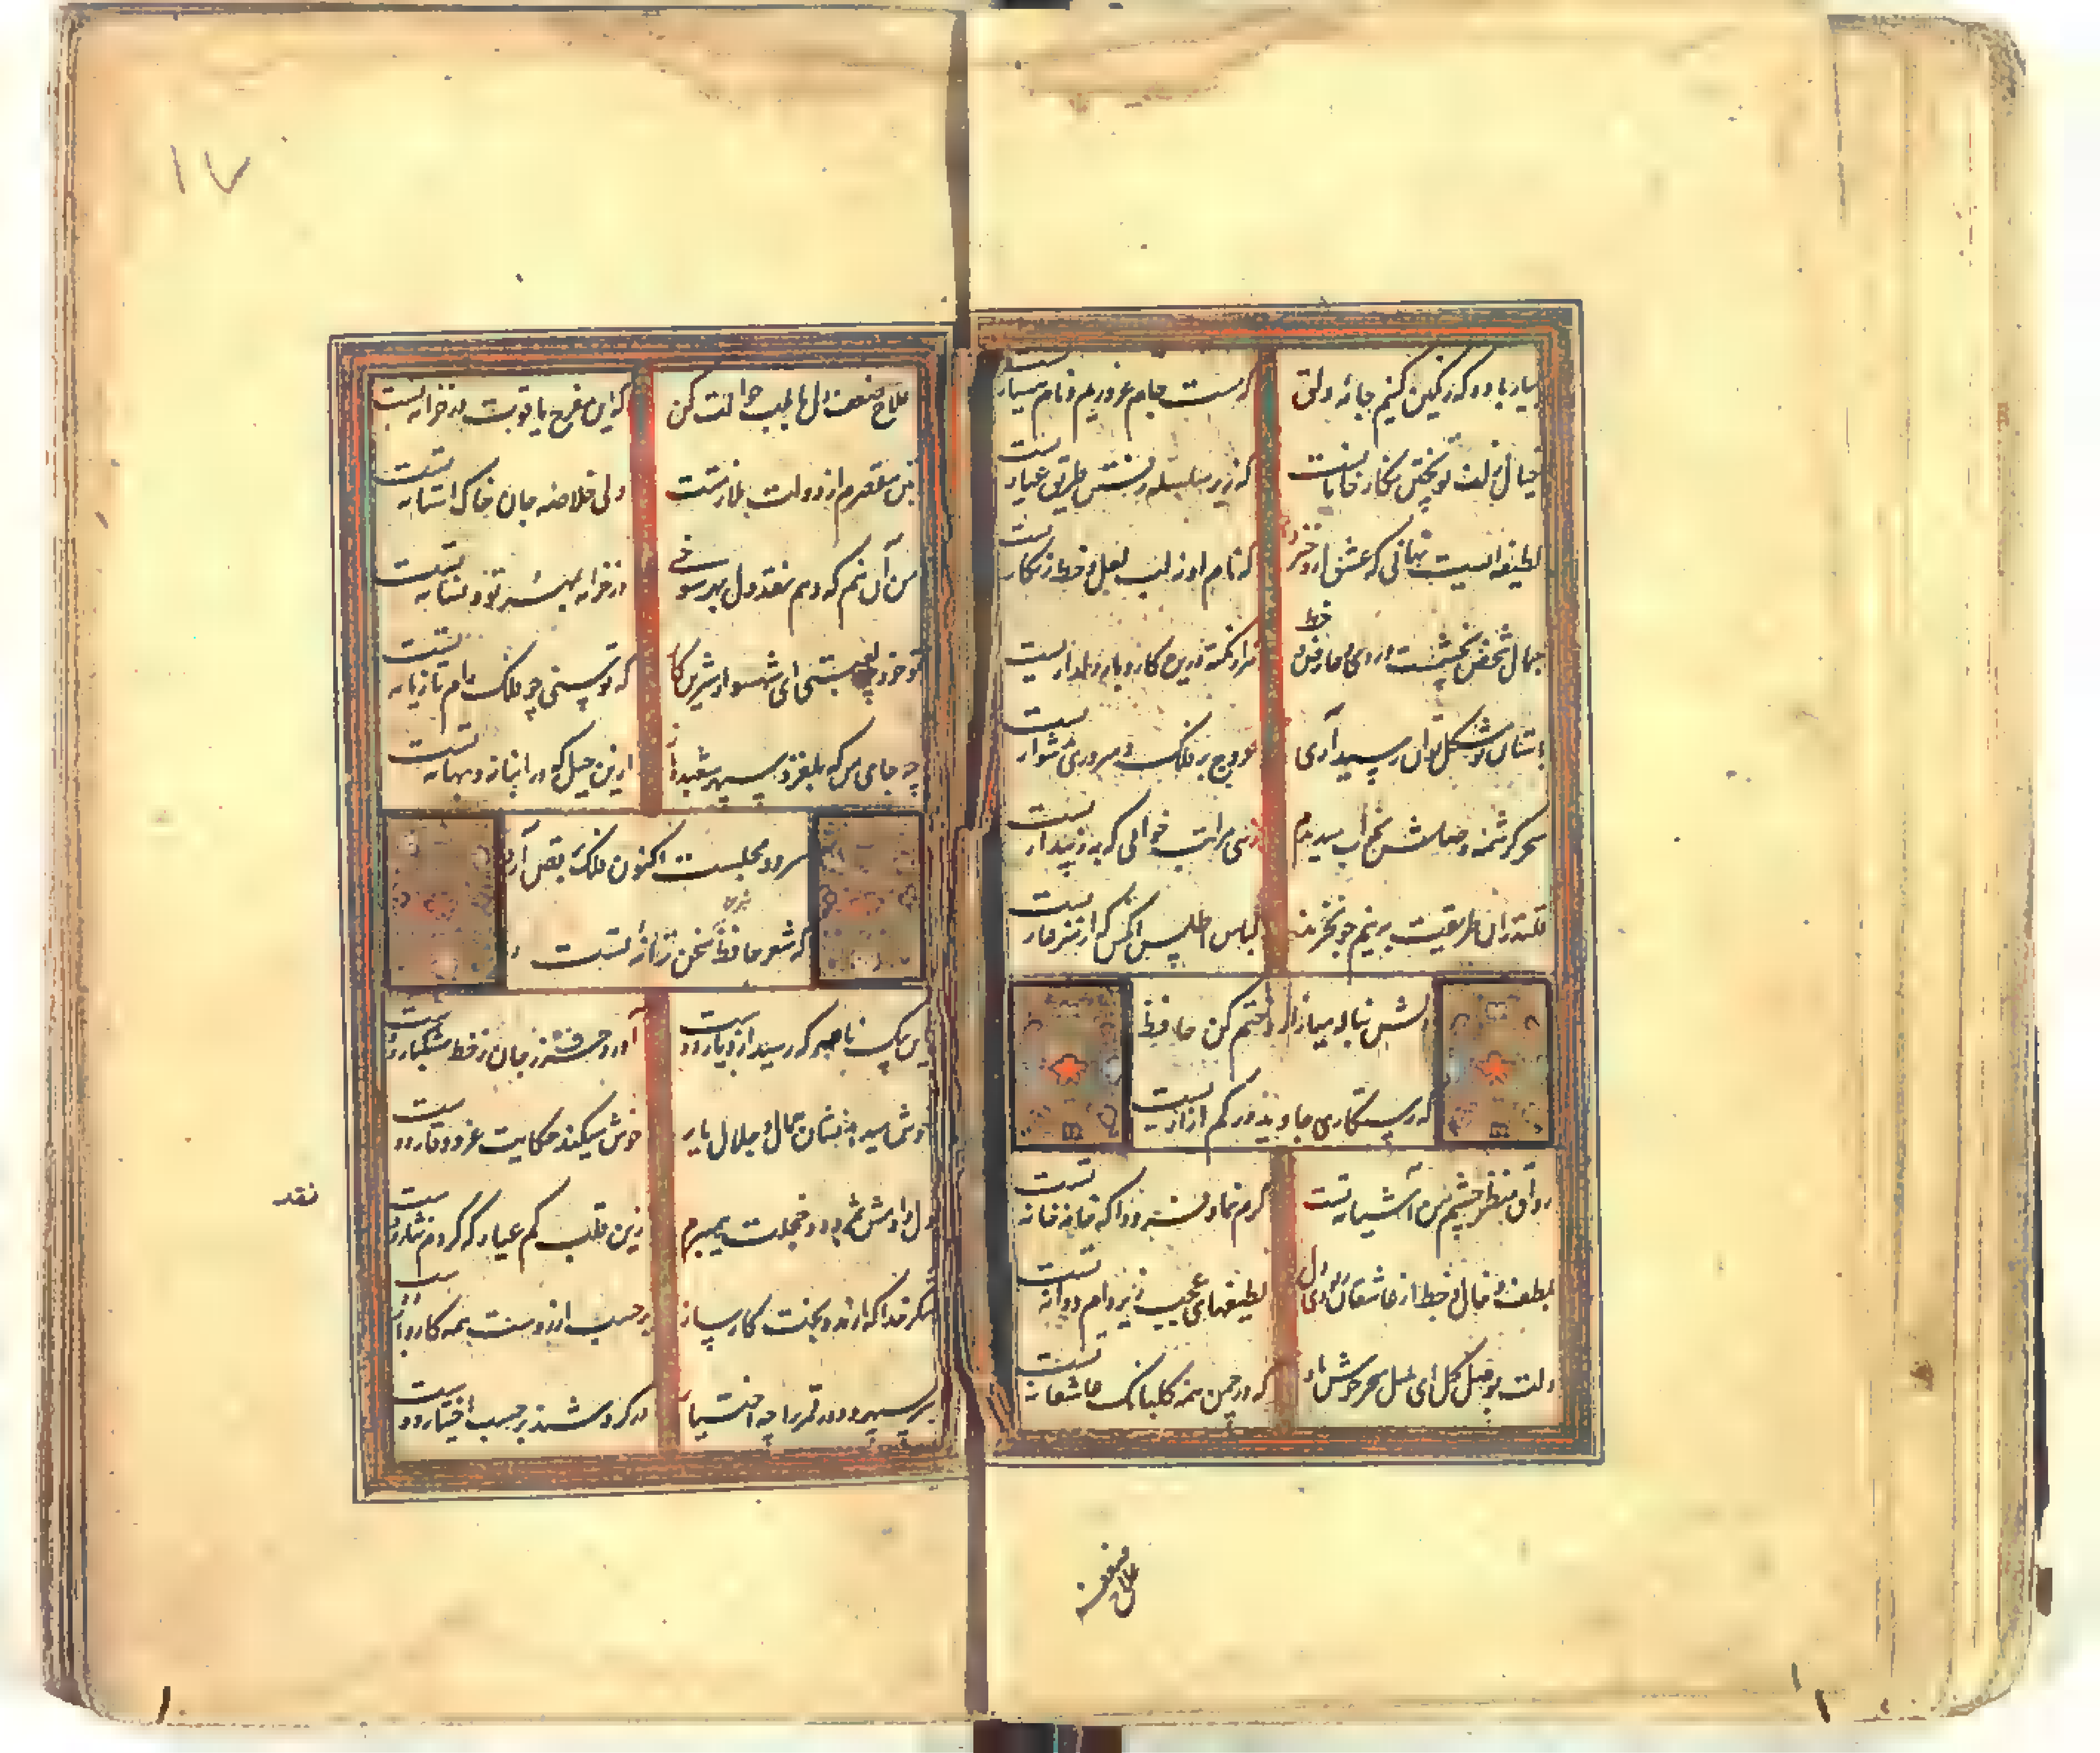 بیار باده که رنگین کنیم جامه دلق
که مست جام غروریم و نام هشیاریست
خیال زلف تو پختن نه کار خامانست
که زیر سلسله رفتن طریق عیاریست
لطیفه ایست نهانی که عشق ازو خیزد
که نام او نه لب لعل و خط زنگاریست
جمال شخص نه چشمست و روی و عارض و خط
هزار نکته درین کار و بار دلداریست
باستان تو مشکل توان رسید آری
عروج بر فلک سروری بدشواریست
سحر کرشمه وصلش بخواب میدیدم
زهی مراتب خوابی که به ز بیداریست
قلندران طریقت به نیم جو نخرند
لباس اطلس آنکس که از هنر عاریست
دلش بناله میازار و ختم کن حافظ
که رستگاری جاوید در کم آزاریست
رواق منظر چشم من آشیانه تست
کرم نما و فرود آ که خانه خانه تست
بلطف و خال و خط از عارفان ربودی دل
لطیفهای عجب زیر دام و دانه تست
دلت بوصل گل ای بلبل سحر خوش باد
که در چمن همه گلبانگ عاشقانه تست
علاج ضعف
۱۷
علاج ضعف دل ما بلب حوالت کن
که این مفرح یاقوت در خزانه تست
بتن مقصرم از دولت ملازمتت
ولی خلاصه جان خاک آستانه تست
من آن نیم که دهم نقد دل بهر شوخی
در خزانه بمهر تو و نشانه تست
تو خود چه لعبتی ای شهسوار شیرین کار
که توسنی چو فلک رام تازیانه تست
چه جای من که بلغزد سپهر شعبده باز
ازین حیل که در انبانه بهانه تست
سرود مجلست اکنون فلک برقص آرد
که شعر حافظ شیرین سخن ترانه تست
این پیک نامبر که رسید از دیار دوست
آورد حرز جان ز خط مشکبار دوست
خوش میدهد نشان جمال و جلال یار
خوش میکند حکایت عز و وقار دوست
دل دادمش بمژده و خجلت همیبرم
زین قلب کم عیار که کردم نثار دوست
شکر خدا که از مدد بخت کارساز
بر حسب آرزوست همه کار و بار دوست
سیر سپهر و دور قمر را چه اختیار
در گردشند بر حسب اختیار دوست
نقد